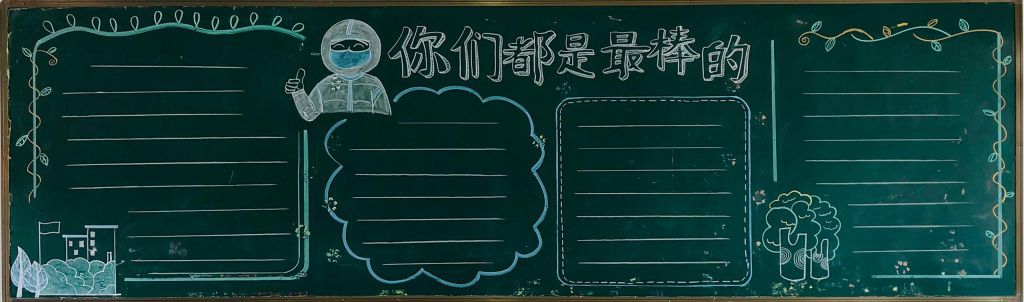 你们都是最棒的